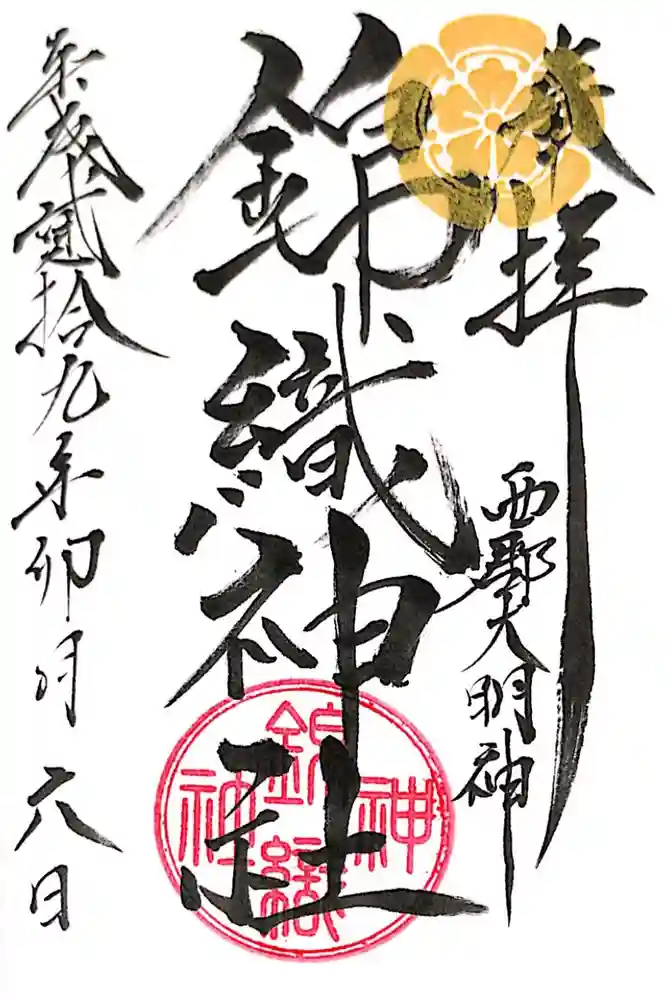 奉拝
西郡大明神
錦織神社
平成弐拾九年卯月六日
錦織神社